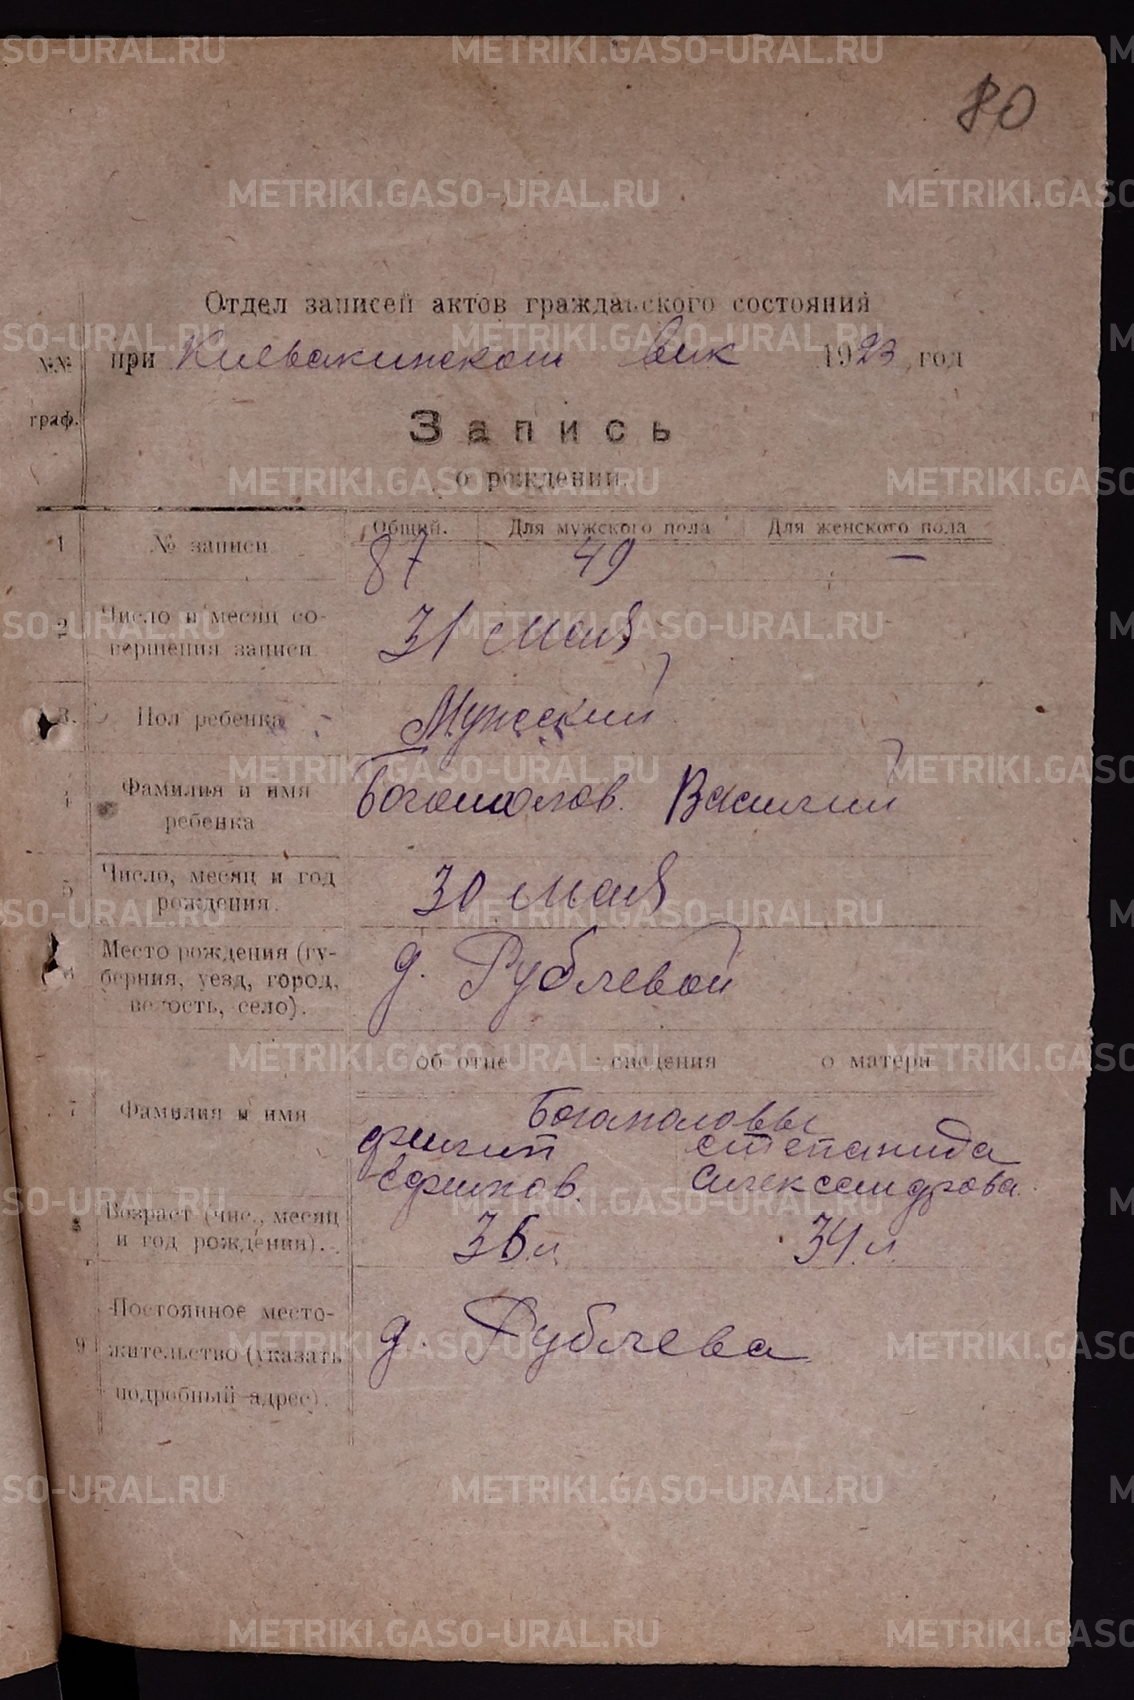 80
Отдел записей актов гражданского состояния
№№ при вик 1923 год
граф.
Запись
о рождении.
Общий. Для мужского пола Для женского пола
1 № записи 87 49 —
2 Число и месяц со-
вершения записи 31 мая
3. Пол ребенка Мужский
4 Фамилия и имя Богомолов. Василий
ребенка
5 Число, месяц и год
рождения. 30 мая
6 Место рождения (гу-
берния, уезд, город,
волость, село). д. Рублевой
об отце сведения о матери
7 Фамилия и имя Богомоловы
Филип Степанида
Ефимов. Александрова.
8 Возраст (чис., месяц
и год рождения). 36 л. 34 л.
9 Постоянное место-
жительство (указать д. Рублева
подробный адрес).
METRIKI.GASO-URAL.RU